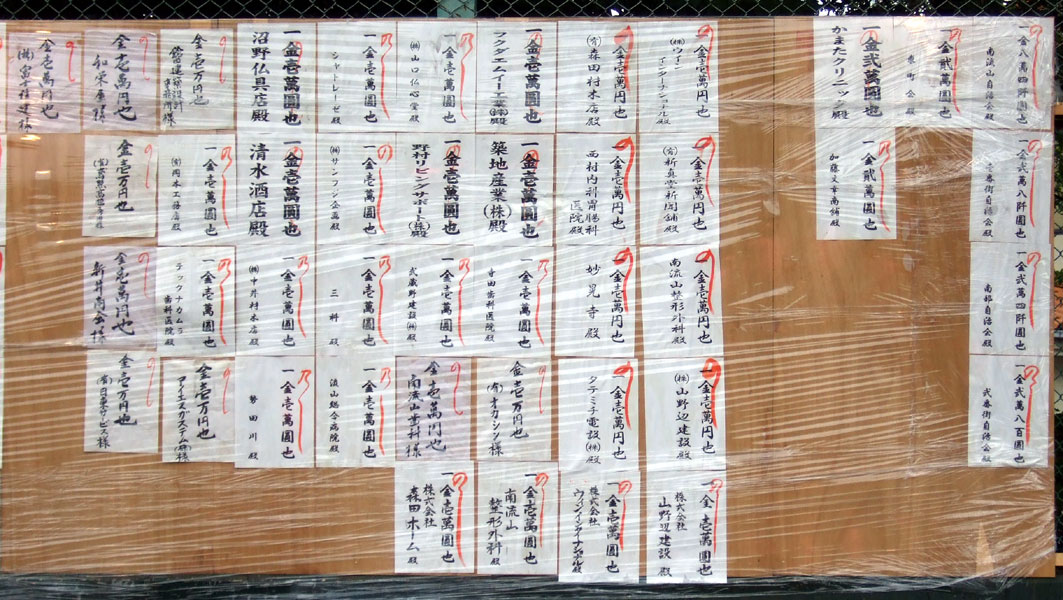 一金八萬四阡圓也
南流山自治会殿
一金貳萬圓也
一金弐萬圓也
かまたクリニック殿
のし 一金壱萬円也
(株)ウイン
インターナショナル殿
のし 一金壱萬円也
(有)森田村木店殿
一金壱萬圓也
フクダエムイー工業(株)殿
のし 一金壱萬圓也
(株)山口仏心堂殿
のし 一金壱萬圓也
シャトレーゼ殿
一金壱萬圓也
沼野仏具店殿
の 金壱万円也
の 金壱萬円也
の 金壱萬円也
のし 一金弐萬八阡圓也
壱番街自治会殿
のし 一金貳萬圓也
加藤文章商舗殿
のし 一金壱萬円也
(有)新真堂新聞舗殿
のし 一金壱萬円也
西村内科胃腸科
医院殿
一金壱萬圓也
築地産業(株)殿
一金壱萬圓也
野村リビングサポート(株)殿
のし 一金壱萬圓也
(株)サンフジ企画殿
一金壱萬圓也
清水酒店殿
のし 一金壱萬圓也
(有)岡本工務店殿
の 金壱万円也
のし 一金弐萬四阡圓也
南部自治会殿
のし 一金壱萬円也
南流山整形外科殿
のし 一金壱萬円也
妙晃寺殿
のし 一金壱萬圓也
寺田歯科医院殿
のし 一金壱萬圓也
武蔵野建設(株)殿
のし 一金壱萬圓也
三科殿
のし 一金壱萬圓也
(株)中井村木店殿
のし 一金壱萬圓也
テックナカムラ
歯科医院殿
の 金壱萬円也
新井商会様
のし 一金弐萬八百圓也
弐番街自治会殿
のし 一金壱萬円也
(株)山野辺建設殿
のし 一金壱萬円也
タテミチ電設(株)殿
の 金壱万円也
(有)オカシン様
の 金壱萬円也
南流山歯科様
のし 一金壱萬圓也
流山総合病院殿
のし 一金壱萬圓也
勢田川殿
の 金壱万円也
の 金壱万円也
のし 一金壱萬圓也
株式会社
山野辺建設殿
のし 一金壱萬圓也
株式会社
ウィンインターナショナル殿
のし 一金壱萬圓也
南流山
整形外科殿
のし 一金壱萬圓也
株式会社
森田ホーム殿